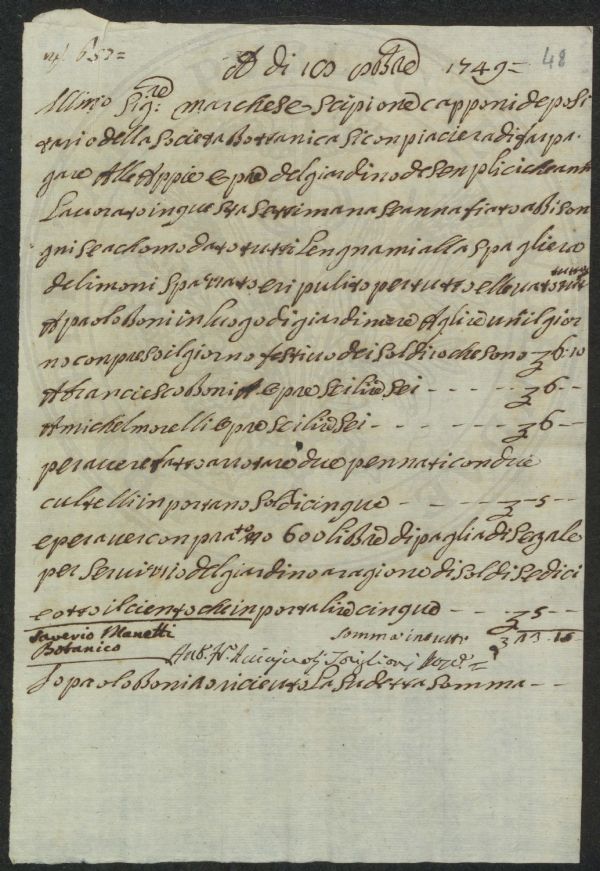 657=
A di 10 1749= 48
Illmo Sigre: marchese scipione capponi deposi
tario della società Bottanica si conpiacierà di far pa-
gare Alle Appiè opre del giardino de senplici che anno
Lavorato in questa settimana se annafiato a Bison
gni se achomodato tutti i Lengnami alla spagliera
de limoni spazzato e ripulito per tutto e llevato tutto
A paolo Boni in luogo di giardinere A lire un il gior
no conpreso il giorno festivo dei soldi 10 che sono 6-10
A franciesco Boni opre sei lire sei - - - - - 6--
A michel morelli opre sei lire sei - - - - - 6--
per avere fatto arrotare due pennati con due
cultelli inportano soldi cinque - - - - -5--
e per aver conprato no 600 libre di paglia di segale
per servitio del giardino a ragione di soldi sedici
e otto il ciento che inporta lire cinque - - - - 5--
Saverio Manetti somma in tutto 23-15
Botanico
Io paolo Boni o ricieuto La sudetta somma - -